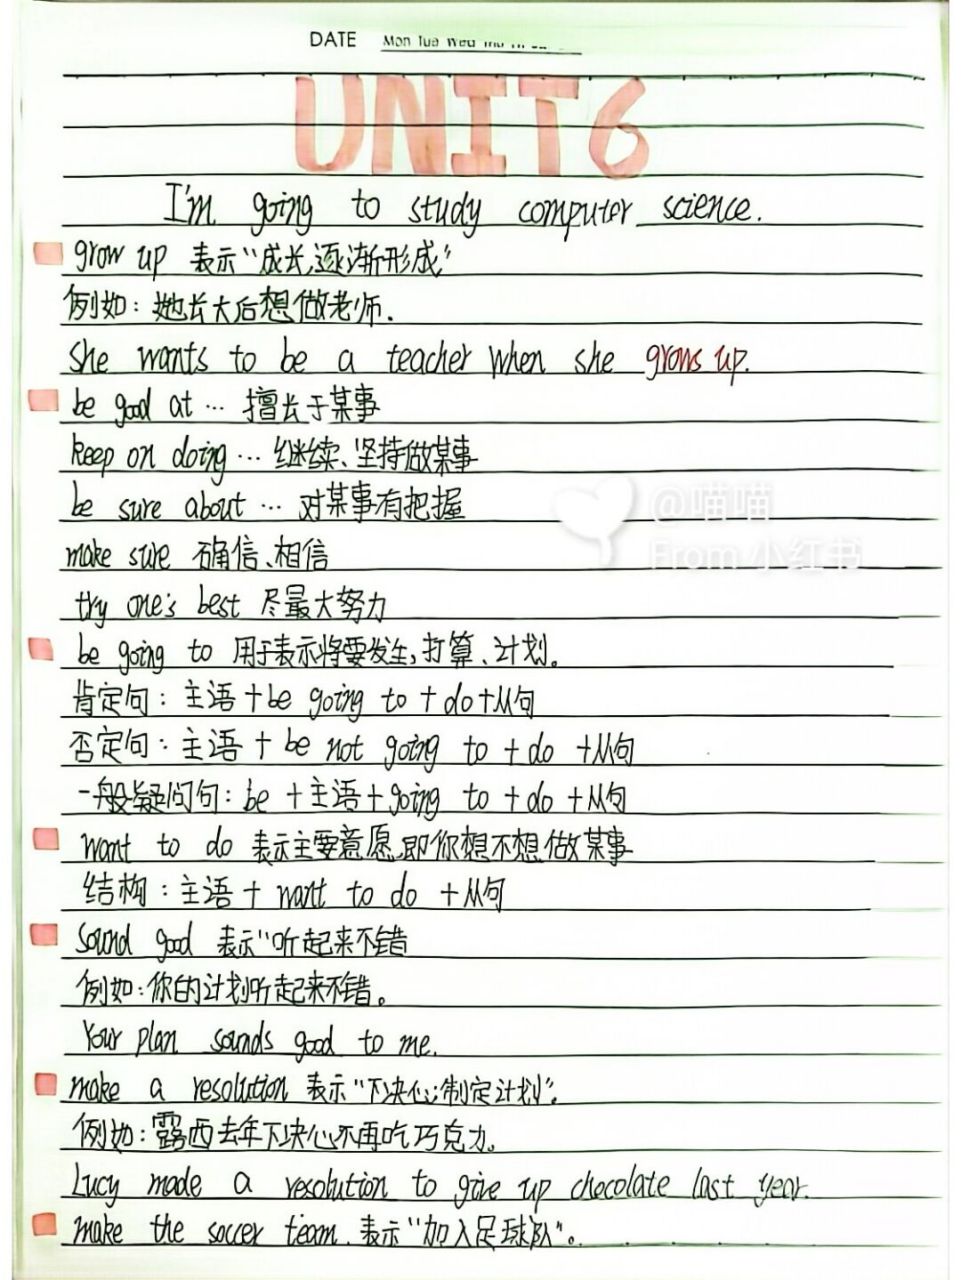 DATE Mon Tue Wed
UNIT6
I'm going to study computer science.
grow up 表示“成长,逐渐形成”
例如：她长大后想做老师.
She wants to be a teacher when she grows up.
be good at … 擅长于某事
keep on doing … 继续、坚持做某事
be sure about … 对某事有把握
make sure 确信、相信
try one's best 尽最大努力
be going to 用于表示将要发生,打算、计划。
肯定句：主语+be going to + do+从句
否定句：主语 + be not going to + do +从句
一般疑问句：be +主语+going to + do +从句
want to do 表示主要意愿,即你想不想做某事
结构：主语 + want to do +从句
Sound good 表示“听起来不错
例如：你的计划听起来不错。
Your plan sounds good to me.
make a resolution 表示“下决心;制定计划”.
例如：露西去年下决心不再吃巧克力。
Lucy made a resolution to give up chocolate last year.
make the soccer team. 表示“加入足球队”。
@喵喵
From 小红书